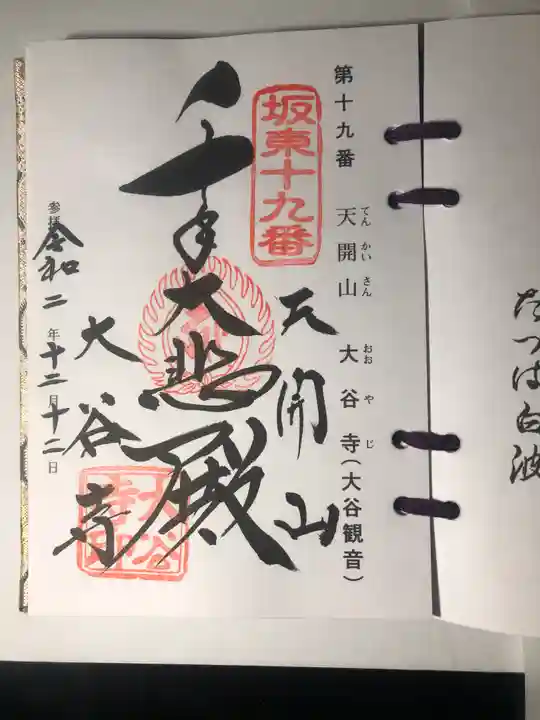 なつは白波
第十九番 天開山 大谷寺(大谷観音)
てんかいさん おおやじ
坂東十九番
天開山
千手大悲殿
大谷寺
大谷寺印
参拝 令和二年十二月十二日